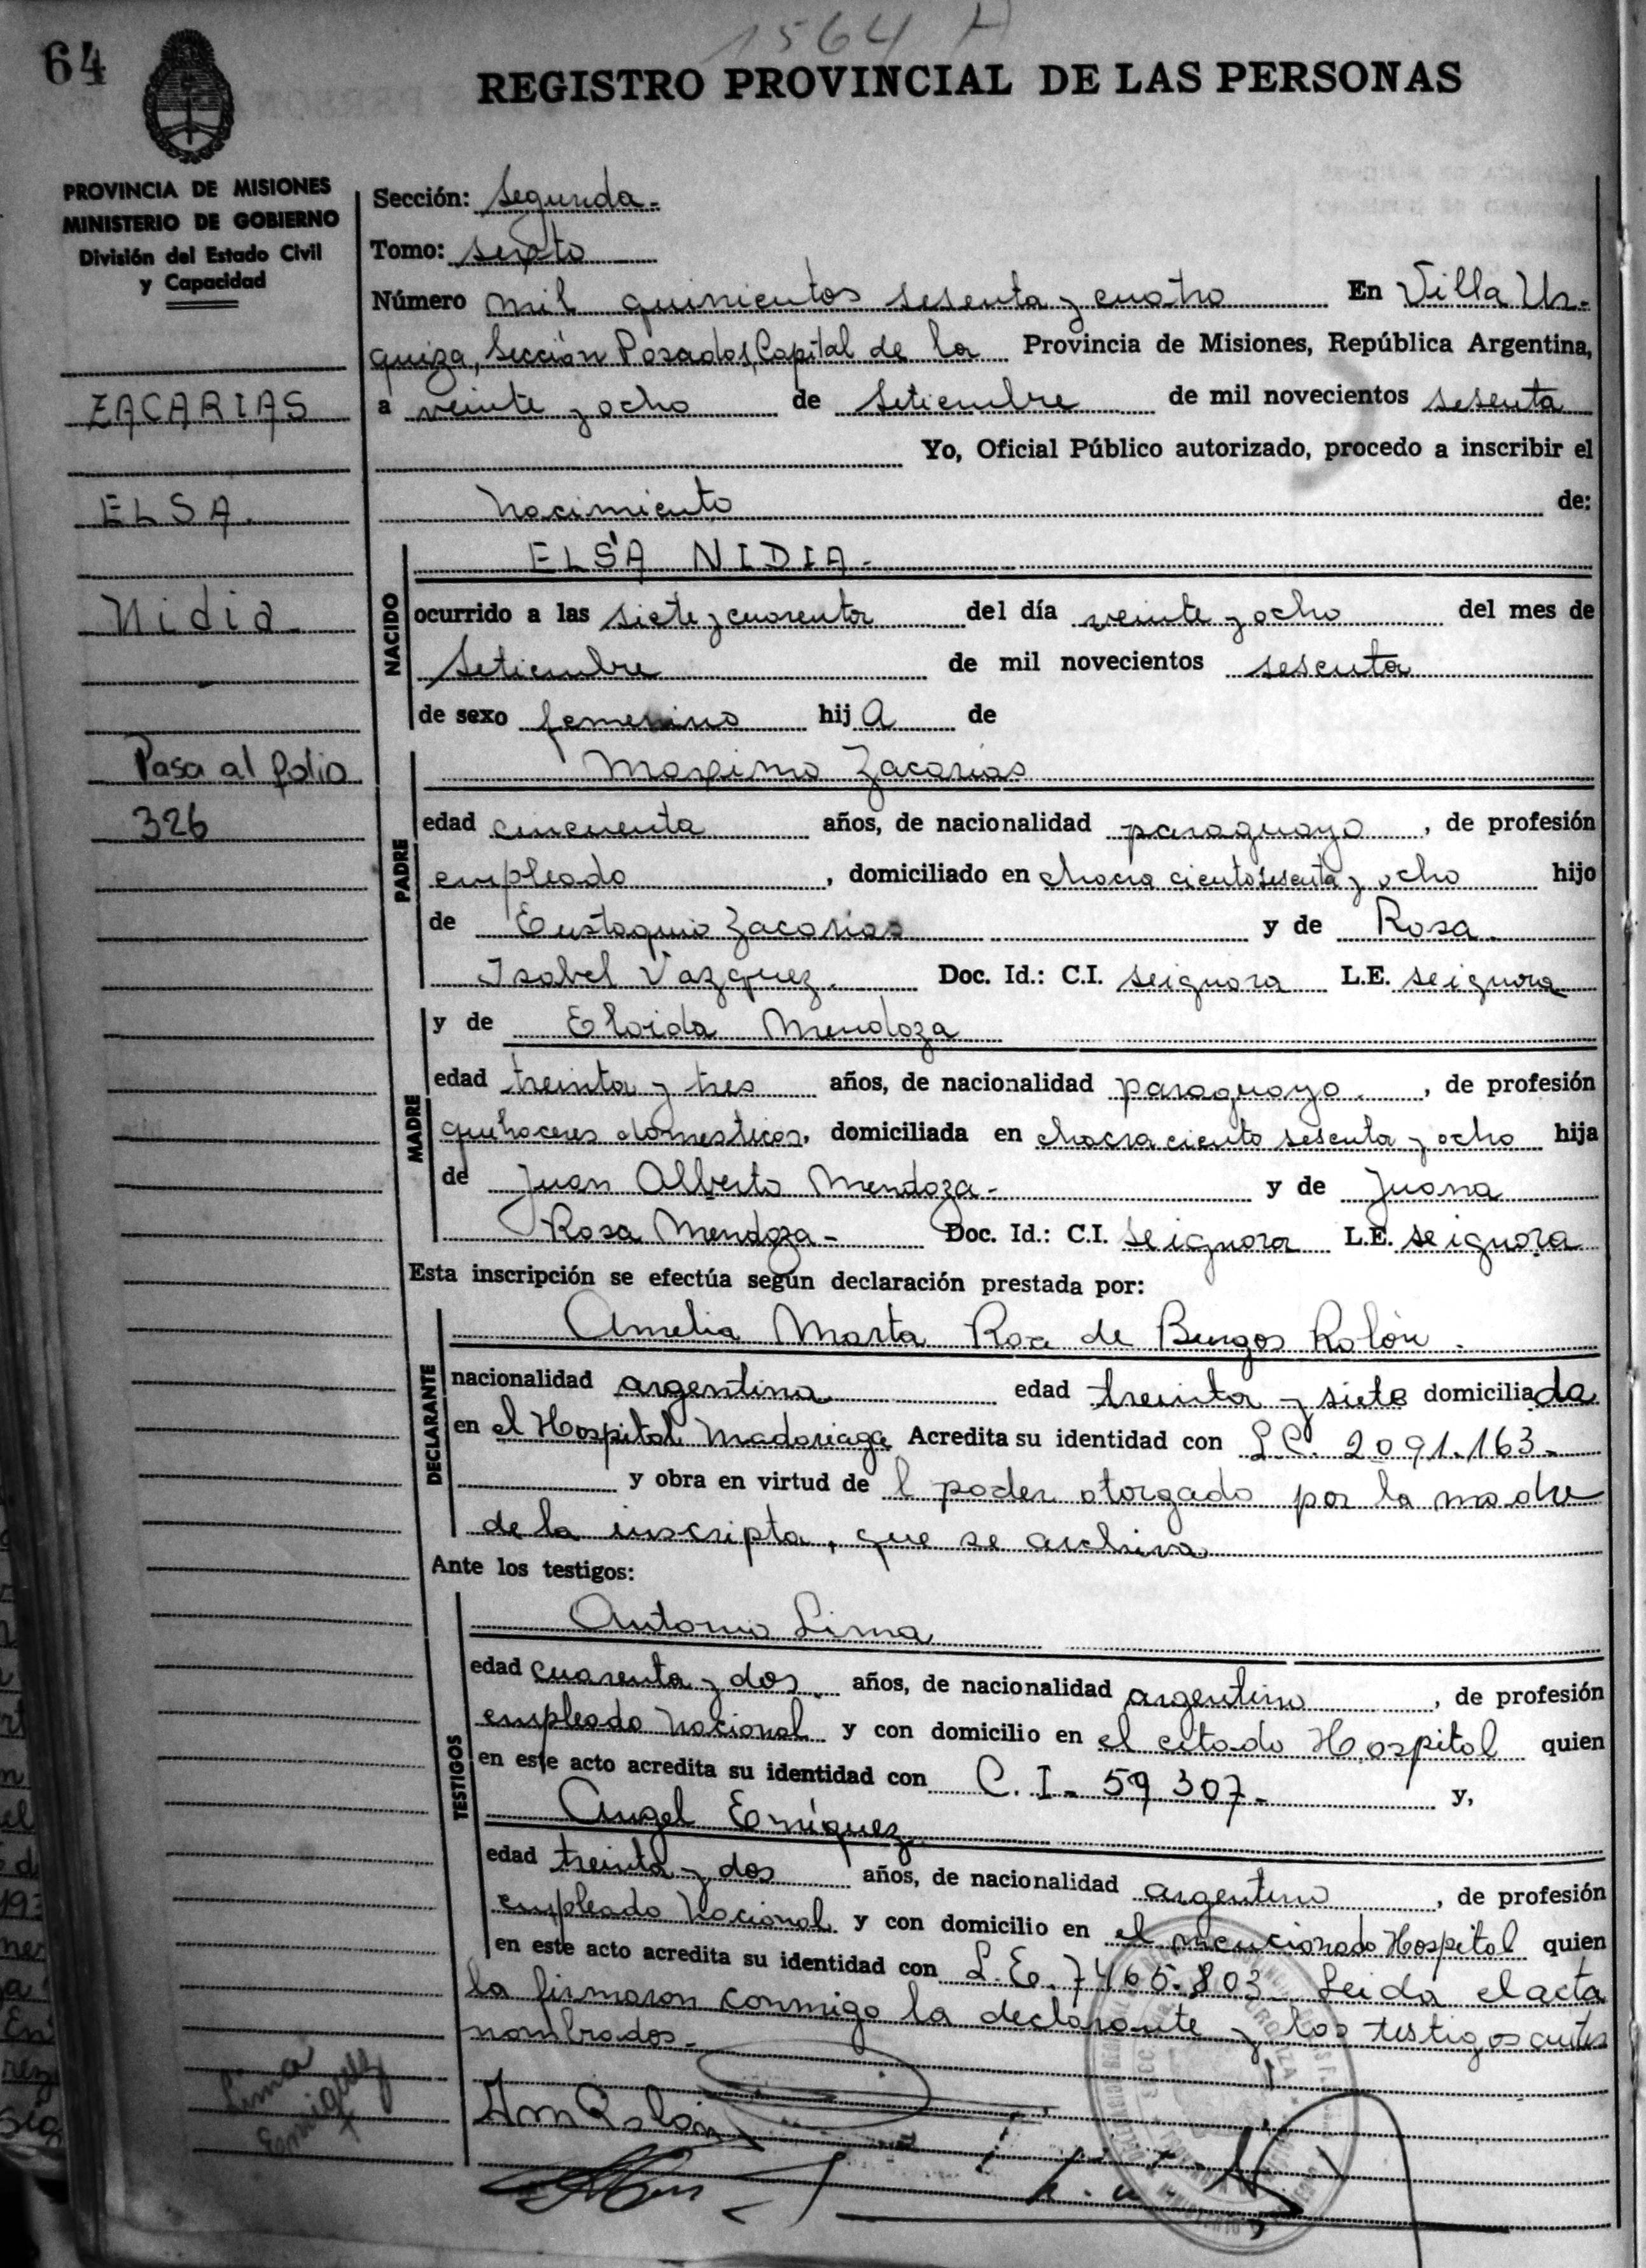 1564 A
64
REGISTRO PROVINCIAL DE LAS PERSONAS
PROVINCIA DE MISIONES
MINISTERIO DE GOBIERNO
División del Estado Civil
y Capacidad
ZACARIAS
ELSA.
Nidia
Pasa al folio
326
Sección: Segunda.
Tomo: sexto
Número mil quinientos sesenta y cuatro En Villa Ur-
quiza, Sección Posadas, Capital de la Provincia de Misiones, República Argentina,
a veinte y ocho de Setiembre de mil novecientos sesenta
Yo, Oficial Público autorizado, procedo a inscribir el
nacimiento de:
NACIDO
ELSA NIDIA.
ocurrido a las siete y cuarenta del día veinte y ocho del mes de
Setiembre de mil novecientos sesenta
de sexo femenino hija de
PADRE
Maximo Zacarias
edad cincuenta años, de nacionalidad paraguayo, de profesión
empleado, domiciliado en chacra ciento sesenta y ocho hijo
de Eustaquio Zacarias y de Rosa
Isabel Vazquez. Doc. Id.: C.I. se ignora L.E. se ignora
MADRE
y de Eloida Mendoza
edad treinta y tres años, de nacionalidad paraguaya., de profesión
quehaceres domesticos, domiciliada en chacra ciento sesenta y ocho hija
de Juan Alberto Mendoza- y de Juana
Rosa Mendoza- Doc. Id.: C.I. se ignora L.E. se ignora
Esta inscripción se efectúa según declaración prestada por:
DECLARANTE
Amelia Marta Roa de Burgos Rolón.
nacionalidad argentina edad treinta y siete domiciliada
en el Hospital Madariaga Acredita su identidad con L.C. 2091.163-
y obra en virtud de l poder otorgado por la madre
de la inscripta, que se archiva
Ante los testigos:
TESTIGOS
Antonio Lima
edad cuarenta y dos años, de nacionalidad argentino, de profesión
empleado nacional y con domicilio en el citado Hospital quien
en este acto acredita su identidad con C.I- 59307- y,
Angel Enriquez
edad treinta y dos años, de nacionalidad argentino, de profesión
empleado nacional y con domicilio en el mencionado Hospital quien
en este acto acredita su identidad con L.E. 7465.803. Leida el acta
la firmaron conmigo la declarante y los testigos antes
nombrados.-
Lima
Enriquez